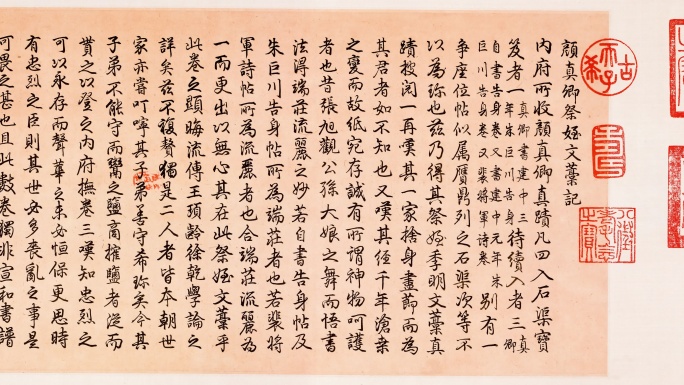 顏真卿祭姪文藁記
內府所收顏真卿真蹟凡四入石渠寶
笈者一真卿書建中三年朱巨川告身待續入者三真卿
自書告身卷又書建中元年朱巨川告身卷又裴將軍詩卷別有一
爭座位帖似属贋鼎列之石渠次等不
以為珎也兹乃得其祭姪季明文藁真
蹟披閱一再嘆其一家捨身盡節而為
其君者如不知也又嘆其經千年滄桒
之變而故纸宛存誠有所謂神物呵護
者也昔張旭觀公孫大娘之舞而悟書
法得端莊流麗之妙若自書告身帖及
朱巨川告身帖所為端莊者也若裴將
軍詩帖所為流麗者也合端莊流麗為
一而更出以無心其在此祭姪文藁乎
此卷之顯晦流傳王頊齡徐乾學論之
詳矣兹不複贅獨是二人者皆本朝世
家亦嘗叮嚀其子弟善守希珎矣今其
子弟不能守而鬻之鹽商搉鹽者從而
貰之以登之內府撫卷三嘆知忠烈之
可以永存而聲華之未必恒保更思時
有忠烈之臣則其世必多喪亂之事是
可畏之甚也且此數卷獨非宣和書譜
古希天子
八徵耄念之寶